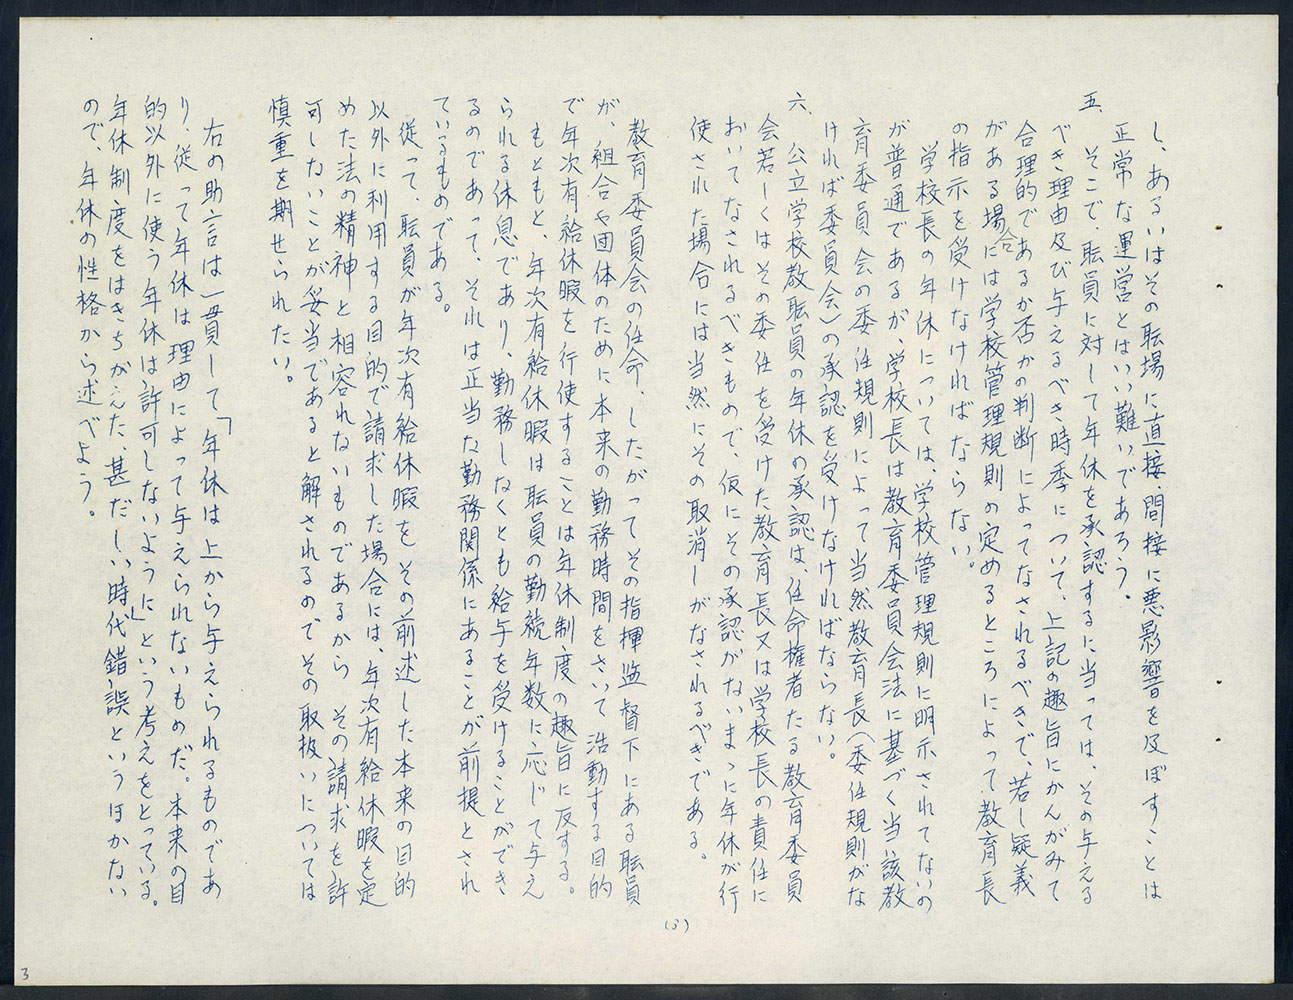 し、あるいはその職場に直接、間接に悪影響を及ぼすことは
正常な運営とはいい難いであろう。
五、そこで、職員に対して年休を承認するに当っては、その与える
べき理由及び与えるべき時季について、上記の趣旨にかんがみて
合理的であるか否かの判断によってなされるべきで、若し疑義
がある場合には学校管理規則の定めるところによって教育長
の指示を受けなければならない。
学校長の年休については、学校管理規則に明示されてないの
が普通であるが、学校長は教育委員会法に基づく当該教
育委員会の委任規則によって当然教育長(委任規則がな
ければ委員会)の承認を受けなければならない。
六、公立学校教職員の年休の承認は、任命権者たる教育委員
会若しくはその委任を受けた教育長又は学校長の責任に
おいてなされるべきもので、仮にその承認がないまゝに年休が行
使された場合には当然にその取消しがなされるべきである。
(3)
教育委員会の任命、したがってその指揮監督下にある職員
が、組合や団体のために本来の勤務時間をさいて浩動する目的
で年次有給休暇を行使することは年休制度の趣旨に反する。
もともと、年次有給休暇は職員の勤続年数に応じて与え
られる休息であり、勤務しなくとも給与を受けることができ
るのであって、それは正当な勤務関係にあることが前提とされ
ているものである。
従って、職員が年次有給休暇をその前述した本来の目的
以外に利用する目的で請求した場合には、年次有給休暇を定
めた法の精神と相容れないものであるから その請求を許
可しないことが妥当であると解されるのでその取扱いについては
慎重を期せられたい。
右の助言は一貫して「年休は上から与えられるものであ
り、従って年休は理由によって与えられないものだ。本来の目
的以外に使う年休は許可しないように」という考えをとっている。
年休制度をはきちがえた、甚だしい時代錯誤というほかない
ので、年休の性格から述べよう。
3